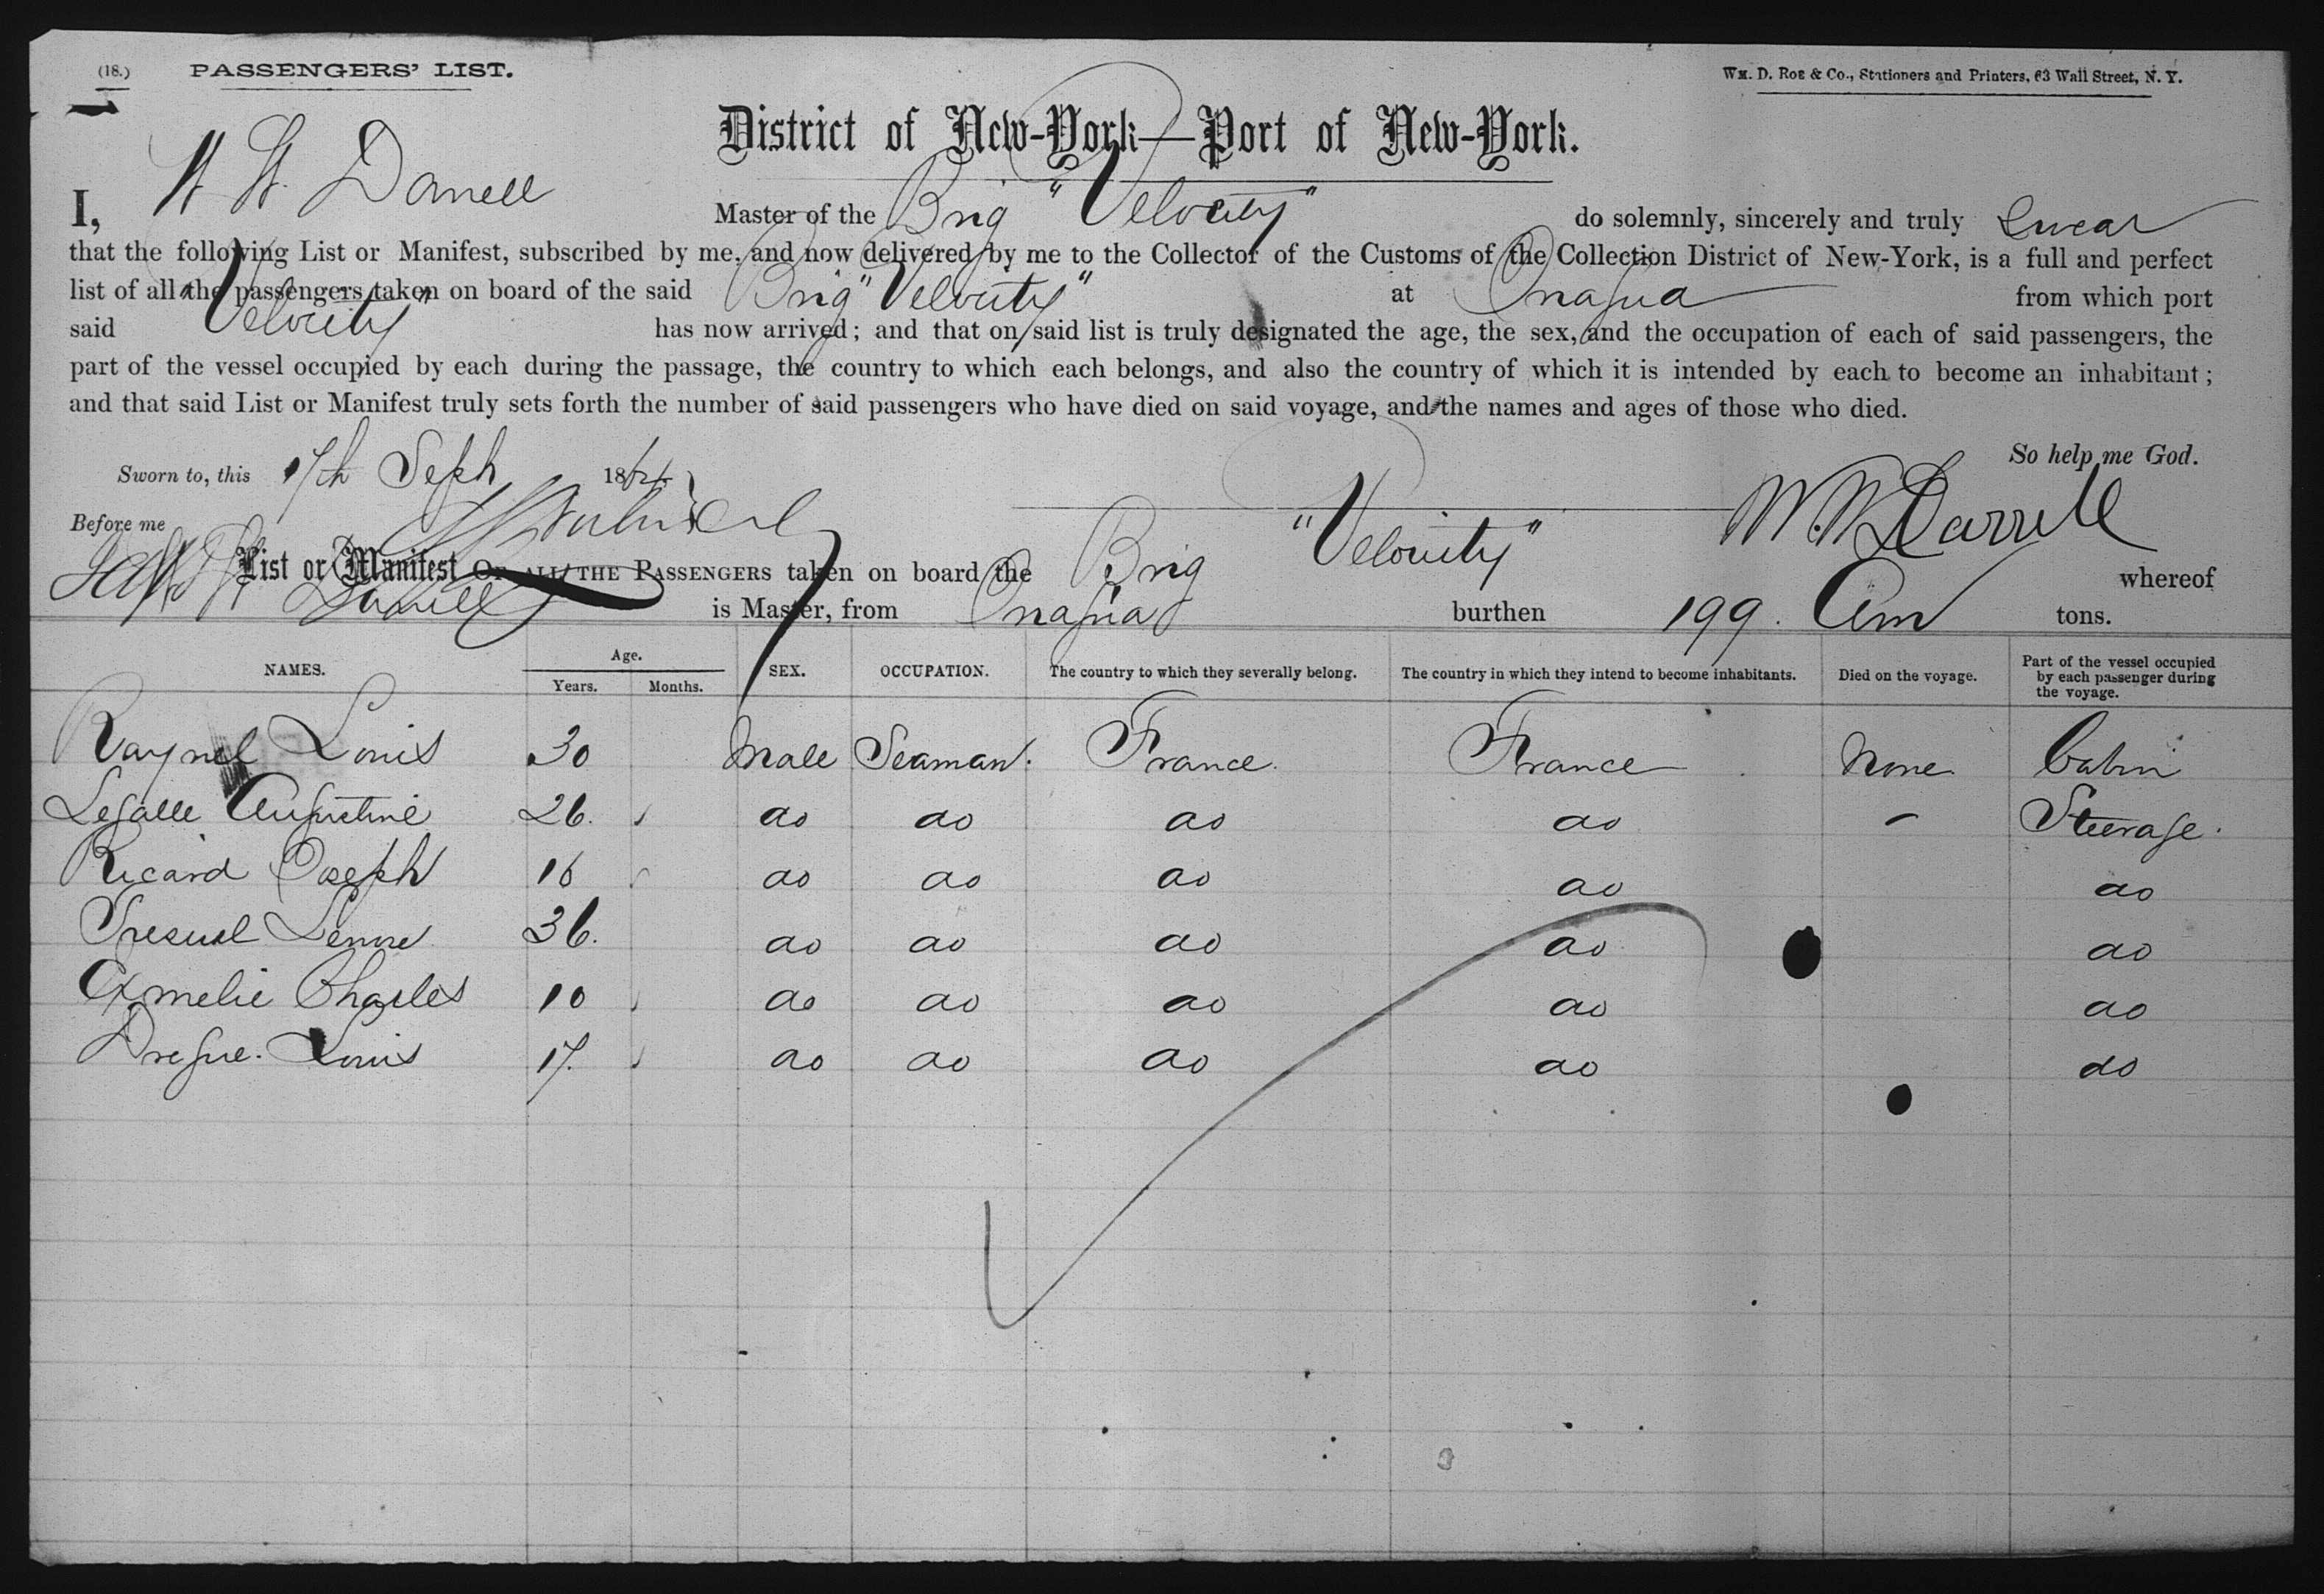 (18.) PASSENGERS' LIST.
WM. D. ROE & CO., Stationers and Printers, 63 Wall Street, N. Y.
District of New-York—Port of New-York.
I, W. W. Darrell Master of the Brig "Velocity" do solemnly, sincerely and truly Swear
that the following List or Manifest, subscribed by me, and now delivered by me to the Collector of the Customs of the Collection District of New-York, is a full and perfect
list of all the passengers taken on board of the said Brig "Velocity" at Inagua from which port
said "Velocity" has now arrived; and that on said list is truly designated the age, the sex, and the occupation of each of said passengers, the
part of the vessel occupied by each during the passage, the country to which each belongs, and also the country of which it is intended by each to become an inhabitant;
and that said List or Manifest truly sets forth the number of said passengers who have died on said voyage, and the names and ages of those who died.
So help me God.
Sworn to, this 17th Sept 186
Before me
W. W. Darrell
List or Manifest OF ALL THE PASSENGERS taken on board the Brig "Velocity" whereof
Darrell is Master, from Inagua burthen 199. Am tons.
NAMES. Age. Years. Months. SEX. OCCUPATION. The country to which they severally belong. The country in which they intend to become inhabitants. Died on the voyage. Part of the vessel occupied by each passenger during the voyage.
Raynel Louis 30 Male Seaman. France. France None Cabin
Legalle Augustine 26. do do do do - Steerage.
Ricard Joseph 16 do do do do do
36. do do do do do
Charles 10 do do do do do
Louis 17. do do do do do